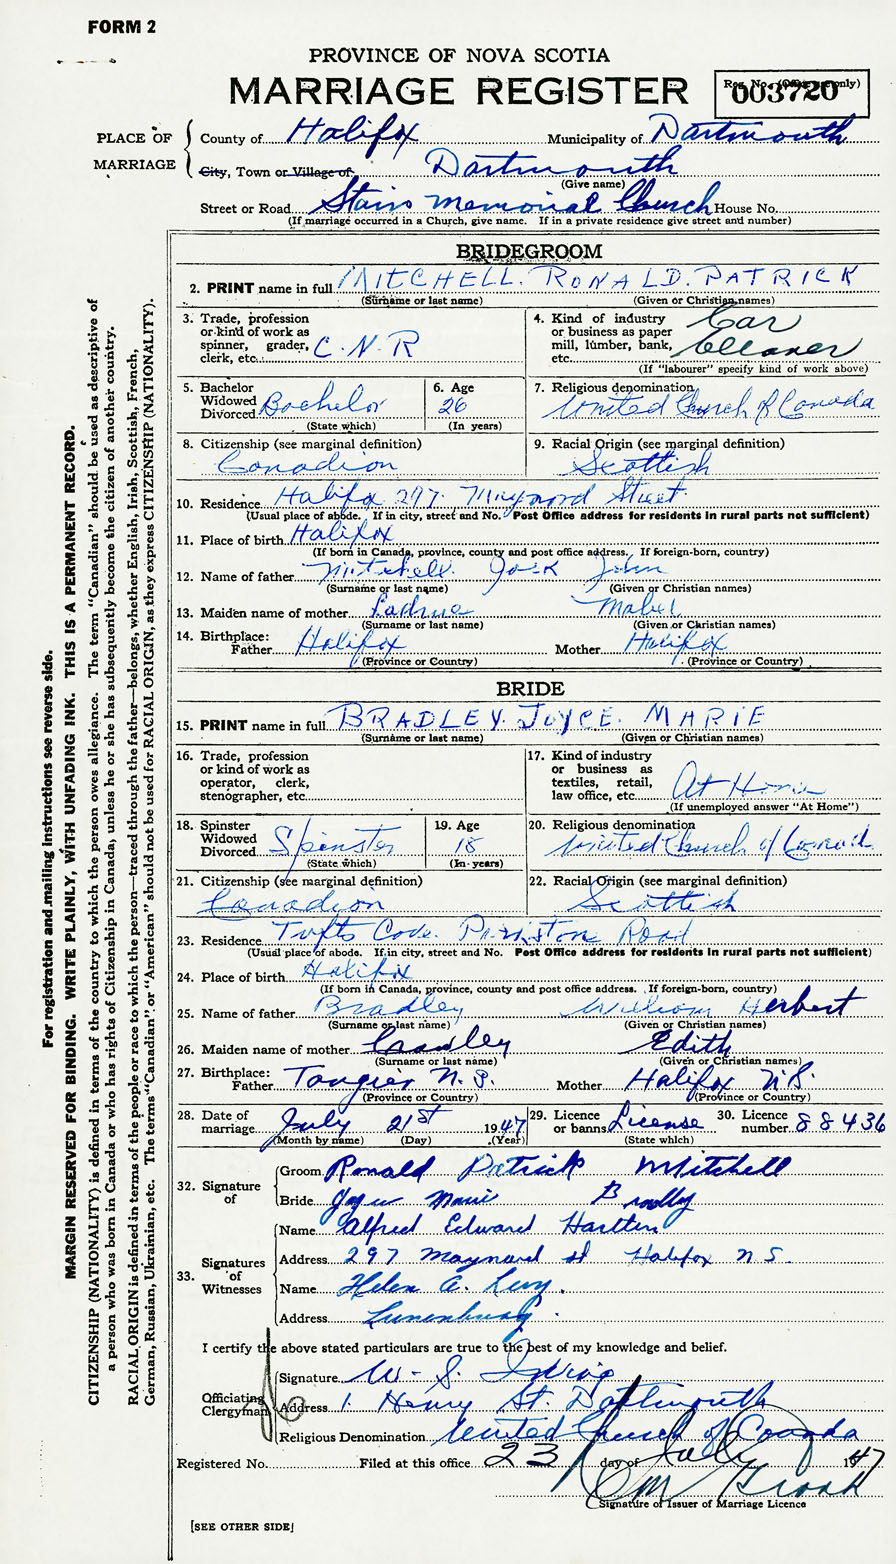 FORM 2
PROVINCE OF NOVA SCOTIA
MARRIAGE REGISTER
Reg. No. (Office use only)
003720
PLACE OF MARRIAGE
County of Halifax Municipality of Dartmouth
City, Town or Village of Dartmouth
(Give name)
Street or Road Stairs Memorial Church House No.
(If marriage occurred in a Church, give name. If in a private residence give street and number)
BRIDEGROOM
2. PRINT name in full MITCHELL. RONALD. PATRICK
(Surname or last name) (Given or Christian names)
3. Trade, profession or kind of work as spinner, grader, clerk, etc. C.N.R
4. Kind of industry or business as paper mill, lumber, bank, etc. Car Cleaner
(If "labourer" specify kind of work above)
5. Bachelor Widowed Divorced Bachelor
(State which)
6. Age 26
(In years)
7. Religious denomination United Church of Canada
8. Citizenship (see marginal definition) Canadian
9. Racial Origin (see marginal definition) Scottish
10. Residence Halifax 297 Maynard Street
(Usual place of abode. If in city, street and No. Post Office address for residents in rural parts not sufficient)
11. Place of birth Halifax
(If born in Canada, province, county and post office address. If foreign-born, country)
12. Name of father Mitchell. Jack John
(Surname or last name) (Given or Christian names)
13. Maiden name of mother Mabel
(Surname or last name) (Given or Christian names)
14. Birthplace: Father Halifax Mother Halifax
(Province or Country) (Province or Country)
BRIDE
15. PRINT name in full BRADLEY. JOYCE. MARIE
(Surname or last name) (Given or Christian names)
16. Trade, profession or kind of work as operator, clerk, stenographer, etc.
17. Kind of industry or business as textiles, retail, law office, etc. At Home
(If unemployed answer "At Home")
18. Spinster Widowed Divorced Spinster
(State which)
19. Age 18
(In years)
20. Religious denomination United Church of Canada
21. Citizenship (see marginal definition) Canadian
22. Racial Origin (see marginal definition) Scottish
23. Residence Tufts Cove. Road
(Usual place of abode. If in city, street and No. Post Office address for residents in rural parts not sufficient)
24. Place of birth Halifax
(If born in Canada, province, county and post office address. If foreign-born, country)
25. Name of father Bradley William Herbert
(Surname or last name) (Given or Christian names)
26. Maiden name of mother Edith
(Surname or last name) (Given or Christian names)
27. Birthplace: Father Tangier N.S. Mother Halifax N.S.
(Province or Country) (Province or Country)
28. Date of marriage July 21st 1947
(Month by name) (Day) (Year)
29. Licence or banns License
(State which)
30. Licence number 88436
32. Signature of
Groom Ronald Patrick Mitchell
Bride Joyce Marie Bradley
33. Signatures of Witnesses
Name Alfred Edward Hartlen
Address 297 Maynard st Halifax N S.
Name Helen A. Levy.
Address Lunenburg.
I certify the above stated particulars are true to the best of my knowledge and belief.
Officiating Clergyman
Signature W. S. Irving
Address 1 Henry St. Dartmouth
Religious Denomination United Church of Canada
Registered No. Filed at this office 23 day of July 1947
Signature of Issuer of Marriage Licence
[SEE OTHER SIDE]
For registration and mailing instructions see reverse side.
MARGIN RESERVED FOR BINDING. WRITE PLAINLY, WITH UNFADING INK. THIS IS A PERMANENT RECORD.
CITIZENSHIP (NATIONALITY) is defined in terms of the country to which the person owes allegiance. The term "Canadian" should be used as descriptive of
a person who was born in Canada or who has rights of Citizenship in Canada, unless he or she has subsequently become the citizen of another country.
RACIAL ORIGIN is defined in terms of the people or race to which the person—traced through the father—belongs, whether English, Irish, Scottish, French,
German, Russian, Ukrainian, etc. The terms "Canadian" or "American" should not be used for RACIAL ORIGIN, as they express CITIZENSHIP (NATIONALITY).